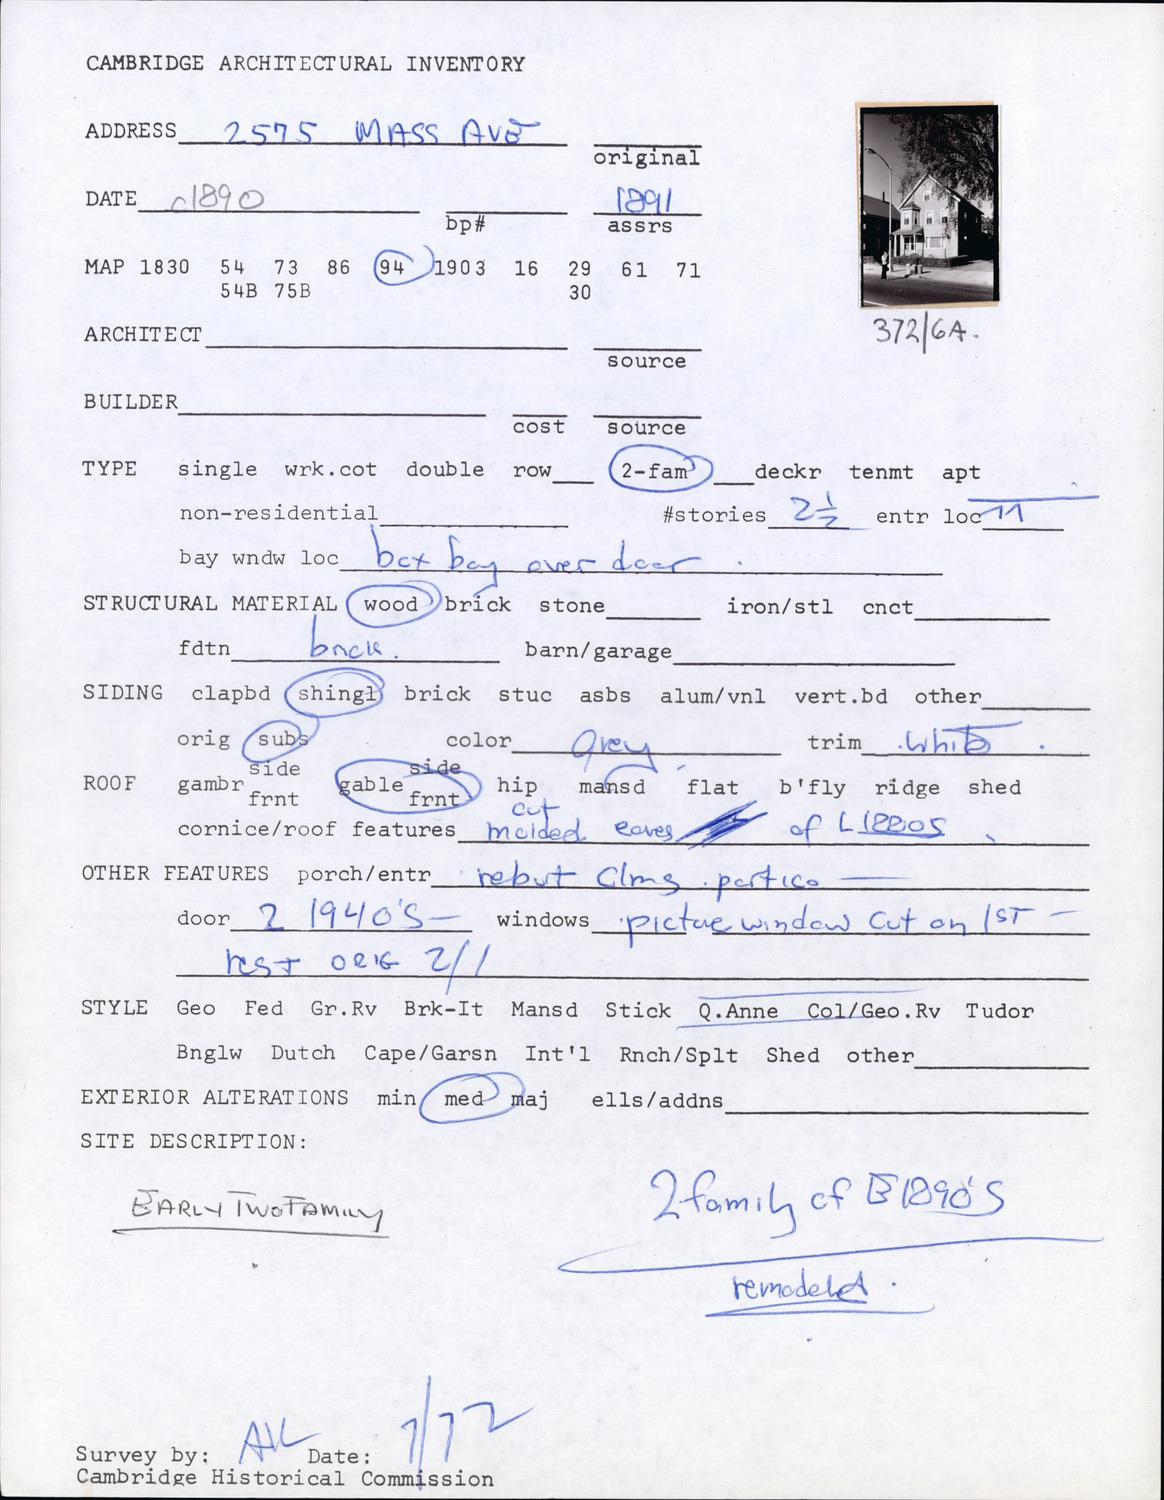 CAMBRIDGE ARCHITECTURAL INVENTORY
ADDRESS 2575 MASS AVE original
DATE c1890 bp# 1891 assrs
MAP 1830 54 73 86 94 1903 16 29 61 71
54B 75B 30
372/6A.
ARCHITECT source
BUILDER cost source
TYPE single wrk.cot double row 2-fam deckr tenmt apt
non-residential #stories 2½ entr loc
bay wndw loc box bay over door
STRUCTURAL MATERIAL wood brick stone iron/stl cnct
fdtn brick. barn/garage
SIDING clapbd shingl brick stuc asbs alum/vnl vert.bd other
orig subs color Grey trim White
ROOF gambr side frnt gable side frnt hip mansd flat b'fly ridge shed
cornice/roof features cut molded eaves of L1880S
OTHER FEATURES porch/entr rebut Clms portico
door 2 1940'S — windows picture window cut on 1ST —
rest ORIG 2/1
STYLE Geo Fed Gr.Rv Brk-It Mansd Stick Q.Anne Col/Geo.Rv Tudor
Bnglw Dutch Cape/Garsn Int'l Rnch/Splt Shed other
EXTERIOR ALTERATIONS min med maj ells/addns
SITE DESCRIPTION:
EARLY TWO FAMILY
2 family of E1890'S
remodeled.
Survey by: Date:
Cambridge Historical Commission